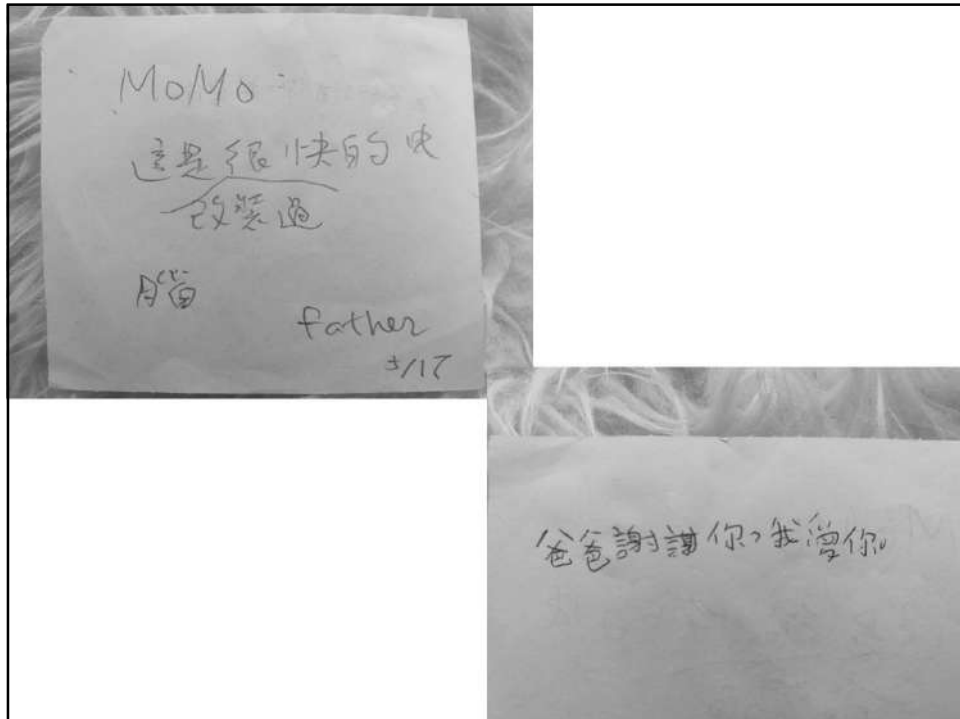 MoMo:
這是很快的
改裝過
腦
father
5/17
爸爸謝謝你,我愛你。